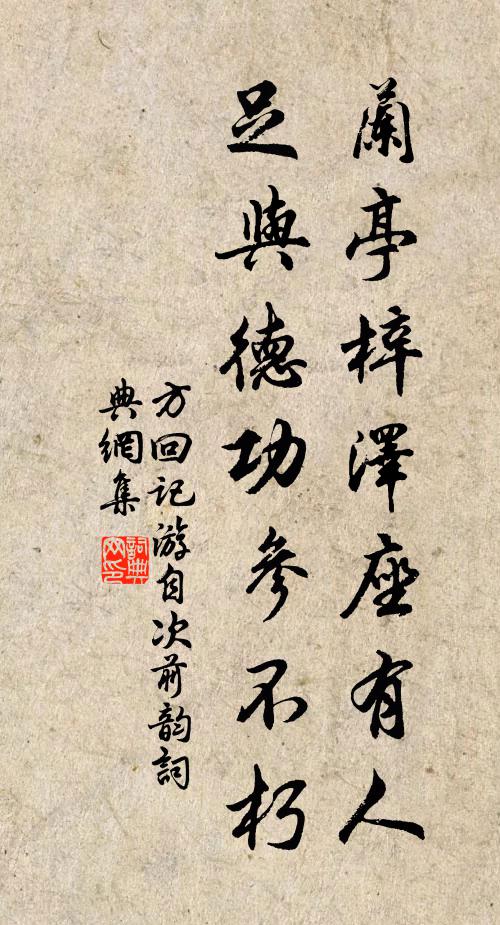 蘭亭梓澤座有人
足與德功參不朽
方回記游自次前韵詞
典網集
詞典
网印